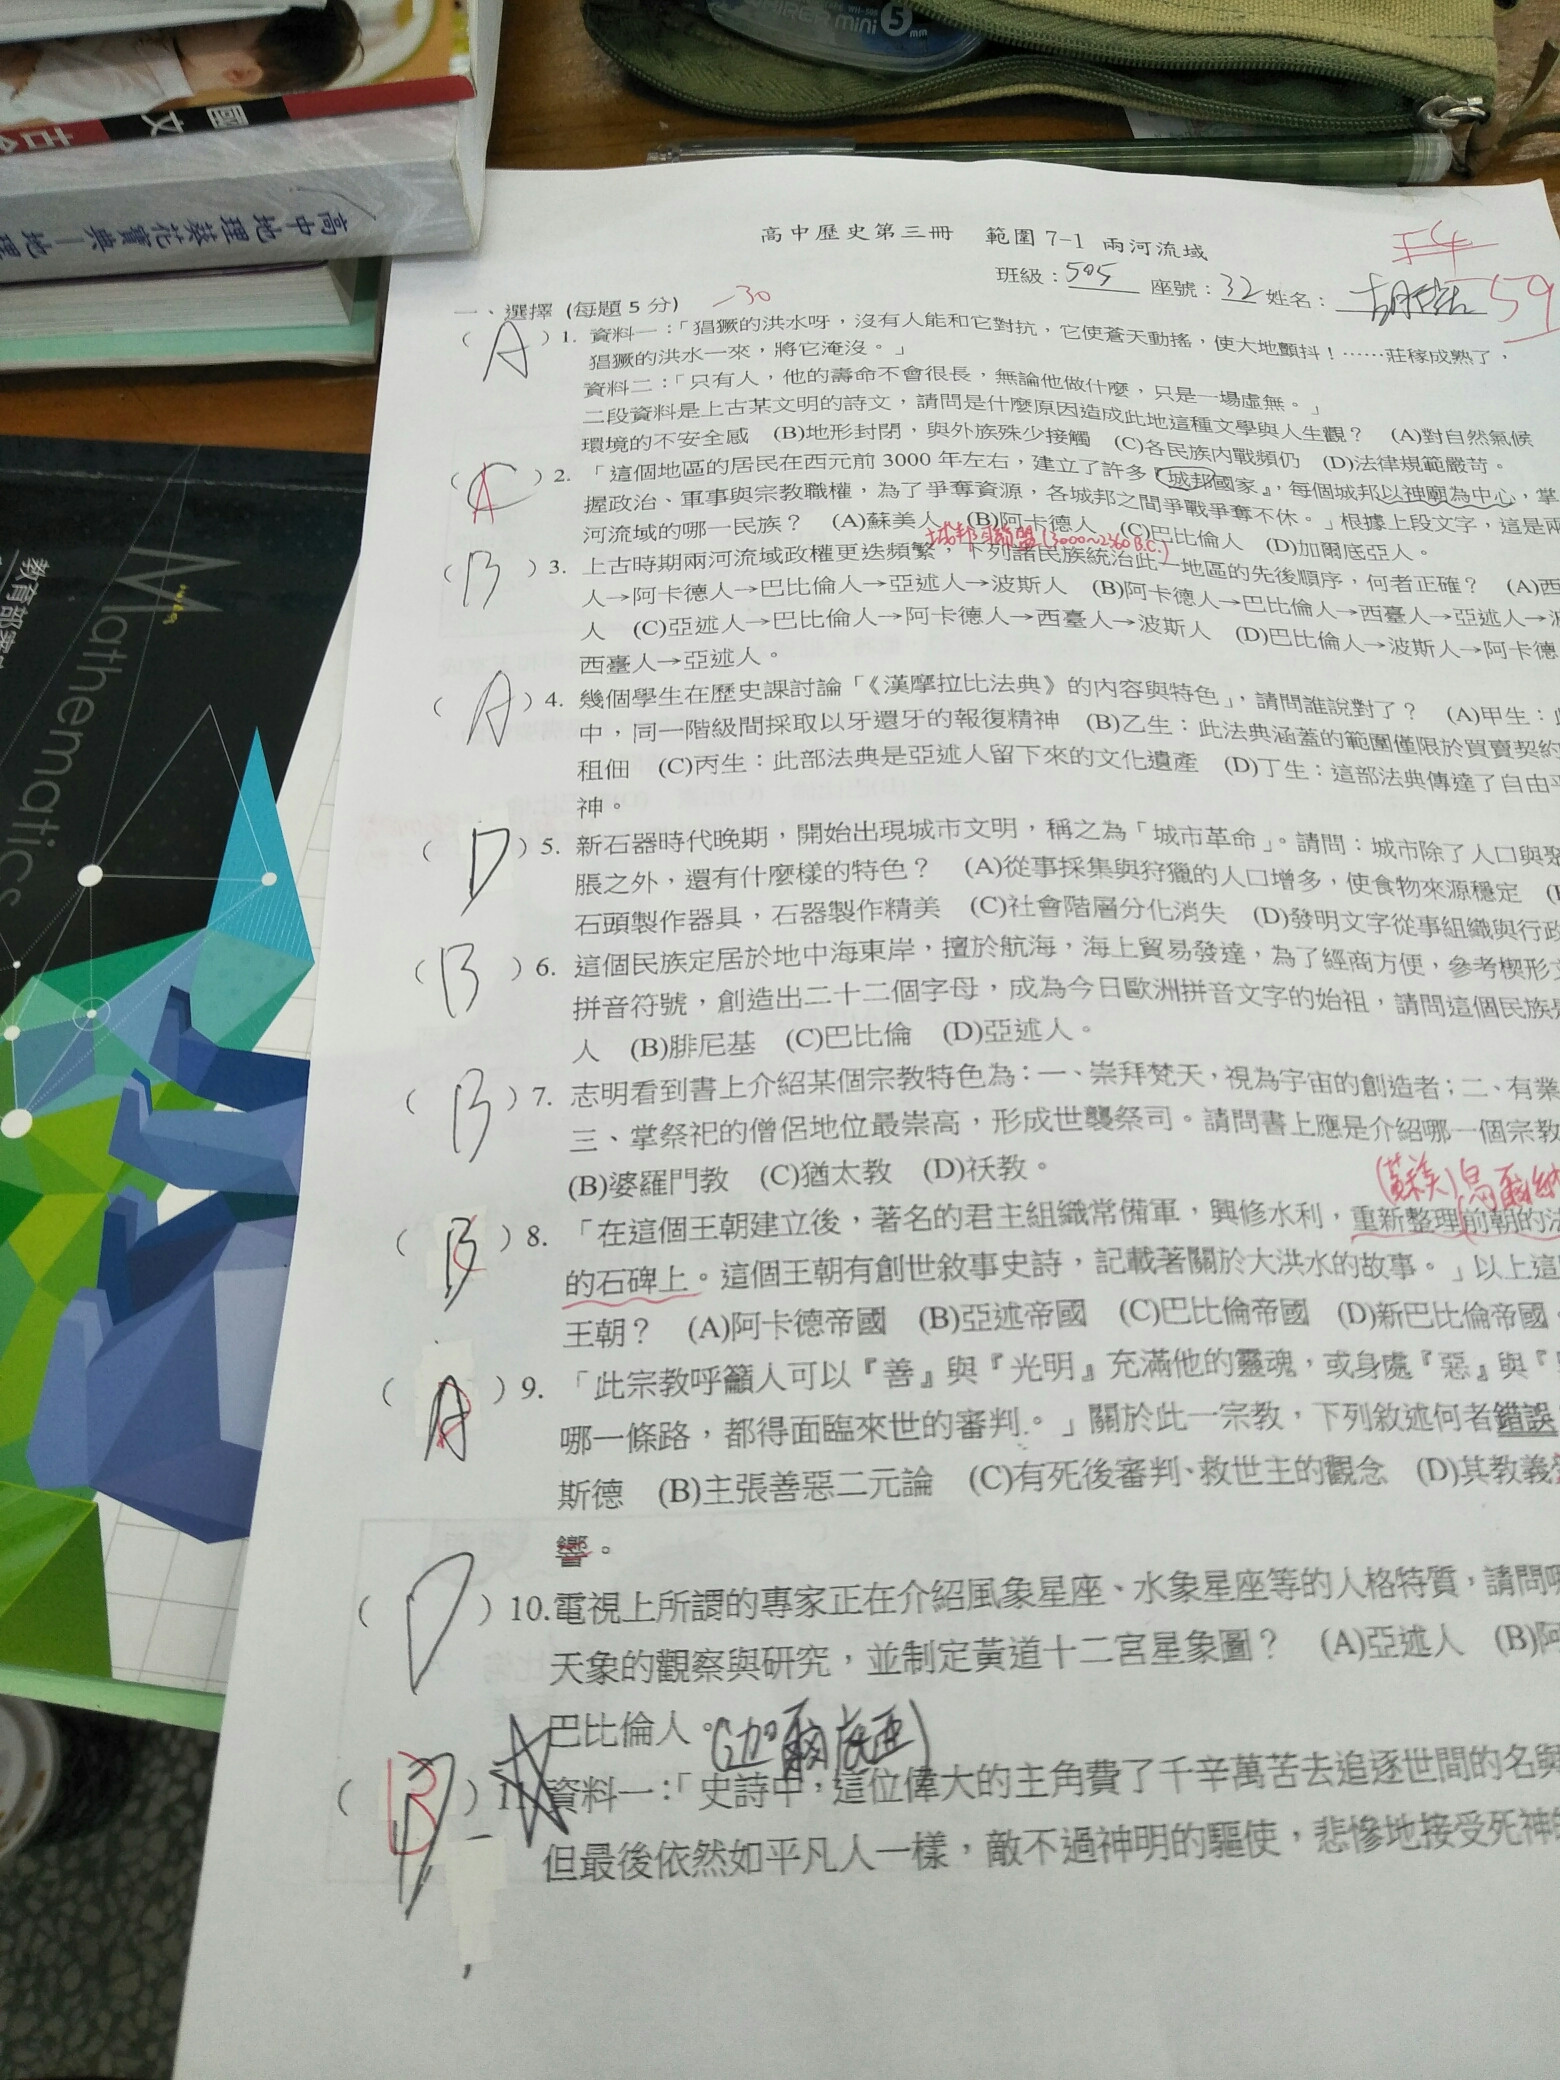 WHIPER mini 5 mm
國文
古今
高中地理葵花寶典—地理
教育部審定
Mathematics
高中歷史第三冊 範圍 7-1 兩河流域
班級：505 座號：32 姓名：
59
一、選擇 (每題 5 分) -30
( A ) 1. 資料一：「猖獗的洪水呀，沒有人能和它對抗，它使蒼天動搖，使大地顫抖！……莊稼成熟了，
猖獗的洪水一來，將它淹沒。」
資料二：「只有人，他的壽命不會很長，無論他做什麼，只是一場虛無。」
二段資料是上古某文明的詩文，請問是什麼原因造成此地這種文學與人生觀？ (A)對自然氣候
環境的不安全感 (B)地形封閉，與外族殊少接觸 (C)各民族內戰頻仍 (D)法律規範嚴苛。
( A ) 2. 「這個地區的居民在西元前 3000 年左右，建立了許多『城邦國家』，每個城邦以神廟為中心，掌
握政治、軍事與宗教職權，為了爭奪資源，各城邦之間爭戰爭奪不休。」根據上段文字，這是兩
河流域的哪一民族？ (A)蘇美人 (B)阿卡德人 (C)巴比倫人 (D)加爾底亞人。
(3000~2360B.C.)
( B ) 3. 上古時期兩河流域政權更迭頻繁，下列諸民族統治此一地區的先後順序，何者正確？ (A)西
人→阿卡德人→巴比倫人→亞述人→波斯人 (B)阿卡德人→巴比倫人→西臺人→亞述人→波
人 (C)亞述人→巴比倫人→阿卡德人→西臺人→波斯人 (D)巴比倫人→波斯人→阿卡德
西臺人→亞述人。
( A ) 4. 幾個學生在歷史課討論「《漢摩拉比法典》的內容與特色」，請問誰說對了？ (A)甲生：此
中，同一階級間採取以牙還牙的報復精神 (B)乙生：此法典涵蓋的範圍僅限於買賣契約
租佃 (C)丙生：此部法典是亞述人留下來的文化遺產 (D)丁生：這部法典傳達了自由平
神。
( D ) 5. 新石器時代晚期，開始出現城市文明，稱之為「城市革命」。請問：城市除了人口與聚
脹之外，還有什麼樣的特色？ (A)從事採集與狩獵的人口增多，使食物來源穩定
石頭製作器具，石器製作精美 (C)社會階層分化消失 (D)發明文字從事組織與行政
( B ) 6. 這個民族定居於地中海東岸，擅於航海，海上貿易發達，為了經商方便，參考楔形文
拼音符號，創造出二十二個字母，成為今日歐洲拼音文字的始祖，請問這個民族是
人 (B)腓尼基 (C)巴比倫 (D)亞述人。
( B ) 7. 志明看到書上介紹某個宗教特色為：一、崇拜梵天，視為宇宙的創造者；二、有業
三、掌祭祀的僧侶地位最崇高，形成世襲祭司。請問書上應是介紹哪一個宗教
(B)婆羅門教 (C)猶太教 (D)祆教。
(蘇美)烏爾納
( B ) 8. 「在這個王朝建立後，著名的君主組織常備軍，興修水利，重新整理前朝的法
的石碑上。這個王朝有創世敘事史詩，記載著關於大洪水的故事。」以上這
王朝？ (A)阿卡德帝國 (B)亞述帝國 (C)巴比倫帝國 (D)新巴比倫帝國
( A ) 9. 「此宗教呼籲人可以『善』與『光明』充滿他的靈魂，或身處『惡』與『
哪一條路，都得面臨來世的審判。」關於此一宗教，下列敘述何者錯誤
斯德 (B)主張善惡二元論 (C)有死後審判、救世主的觀念 (D)其教義
響。
( D ) 10.電視上所謂的專家正在介紹風象星座、水象星座等的人格特質，請問哪
天象的觀察與研究，並制定黃道十二宮星象圖？ (A)亞述人 (B)阿
巴比倫人。(迦爾底亞)
( B ) 11.資料一：「史詩中，這位偉大的主角費了千辛萬苦去追逐世間的名與
但最後依然如平凡人一樣，敵不過神明的驅使，悲慘地接受死神